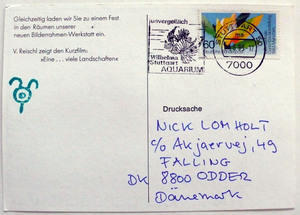 Gleichzeitig laden wir Sie zu einem Fest
in den Räumen unserer
neuen Bilderrahmen-Werkstatt ein.
V. Reischl zeigt den Kurzfilm:
»Eine ... viele Landschaften«
unvergeßlich
Wilhelma
Stuttgart
AQUARIUM
STUTTGART 50
60
7000
Drucksache
NICK LOMHOLT
c/o Akjaervej, 49
FALLING
DK 8800 ODDER
Dänemark